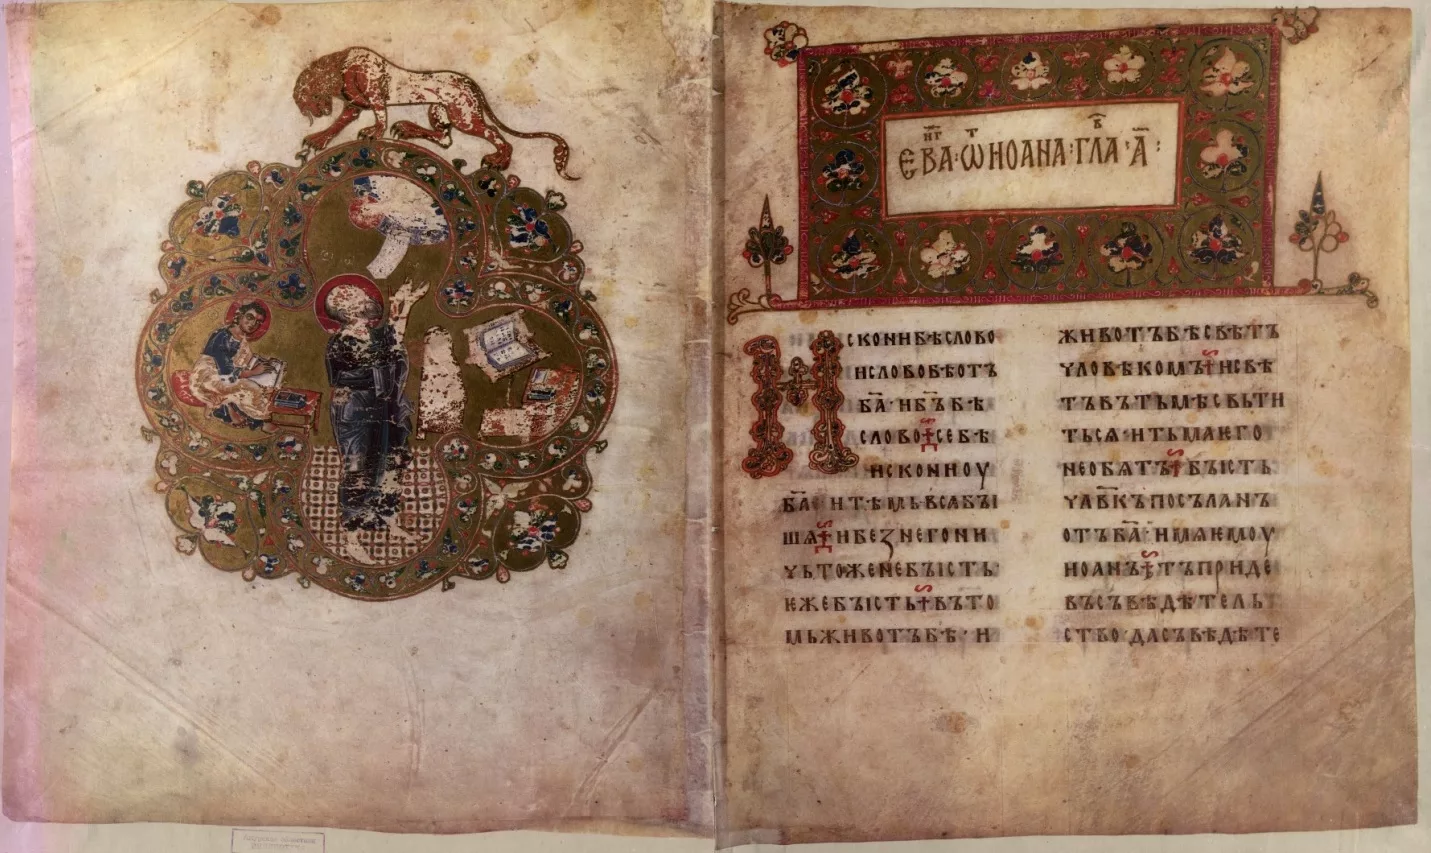 ЄВАⷩ҇гⷢ҇ · ѾⷮИОАНА · ГЛⷡ҇А · А҃ :
ИСКОНИБѢСЛОВО
ИСЛОВОБѢОТЪ
БА҃ · ИБ҃ЪБѢ
СЛОВО СЕБѢ
ИСКОНИОУ
БА҃ · И ТѢМЬВСꙖБЫ
ШѦ ИБЕЗНЕГОНИ
ЧЬТОЖЕНЕБЫСТЬ ·
ѤЖЕБЪІСТЬ ВЪТО
МЬЖИВОТЪБѢ · И
ЖИВОТЪБѢСВѢТЪ
ЧЛОВѢКОМЪ ИСВѢ
ТЪВЪТЬМѢСВЬТИ
ТЬСѦ · ИТЬМАѤГО
НЕОБѦТЪ БЪІСТЬ
ЧЛ҃ВКЪПОСЪЛАНЪ
ОТЪБА҃ · ИМѦѤМОУ
ИОАНЪ ТЪПРИДЕ
ВЪСЪВѢДѢТЕЛЬ
СТВО · ДАСЪВѢДѢТЕ